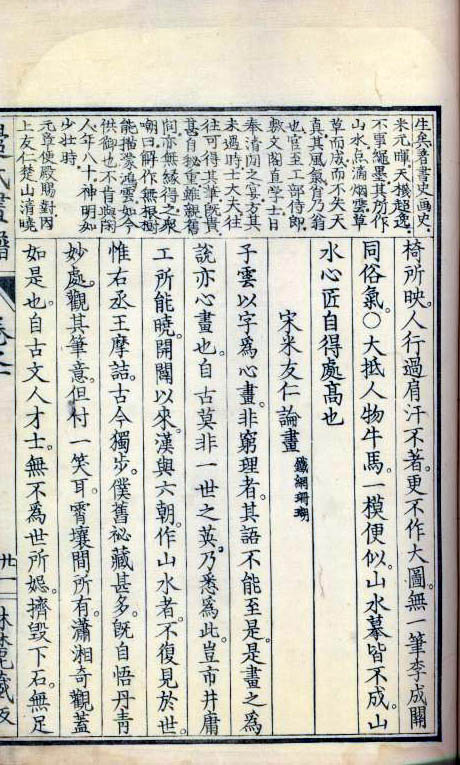 生矣著書史画史
米元暉天機超逸
不事繩墨其所作
山水点滴烟雲草
草而成而不失天
真其風氣肖乃翁
也官至工部侍郎
敷文閣直學士日
奉清閒之宴方其
未遇時士大夫往
往可得其筆既貴
甚自秘重雖親舊
間亦無緣得之衆
嘲曰解作無根樹
能描濛鴻雲如今
供御也不肯與閒
人年八十神明如
少壮時
元章使殿賜對因
上友仁楚山清曉
椅所映。人行過肩汗不著。更不作大圖。無一筆李成關
同俗氣。〇大抵人物牛馬。一模便似。山水摹皆不成。山
水心匠自得處高也
宋米友仁論畫 鐵網珊瑚
子雲以字爲心畫。非窮理者。其語不能至是。是畫之爲
說。亦心畫也。自古莫非一世之英。乃悉爲此。豈市井庸
工所能曉。開闢以來。漢與六朝作山水者。不復見於世。
惟右丞王摩詰。古今獨步。僕舊祕藏甚多。既自悟丹青
妙處。觀其筆意。但付一笑耳。霄壤間所有。瀟湘奇觀蓋
如是也。自古文人才士。無不爲世所媢。擠毀下石。無足